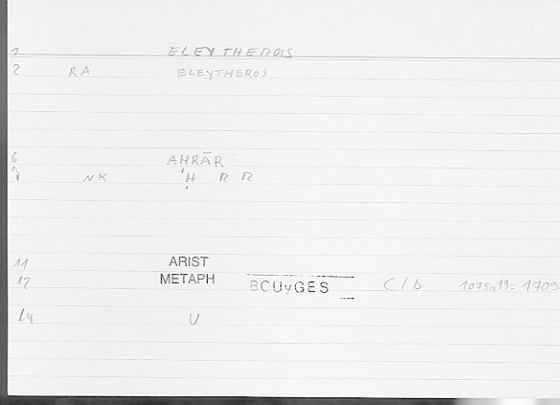 1 ELEYTHEROIS
2 RA ELEYTHEROS
6 AHRĀR
NK 'Ḥ R R
11 ARIST
12 METAPH BCUyGES C/b 1075a19: 1709
14 U